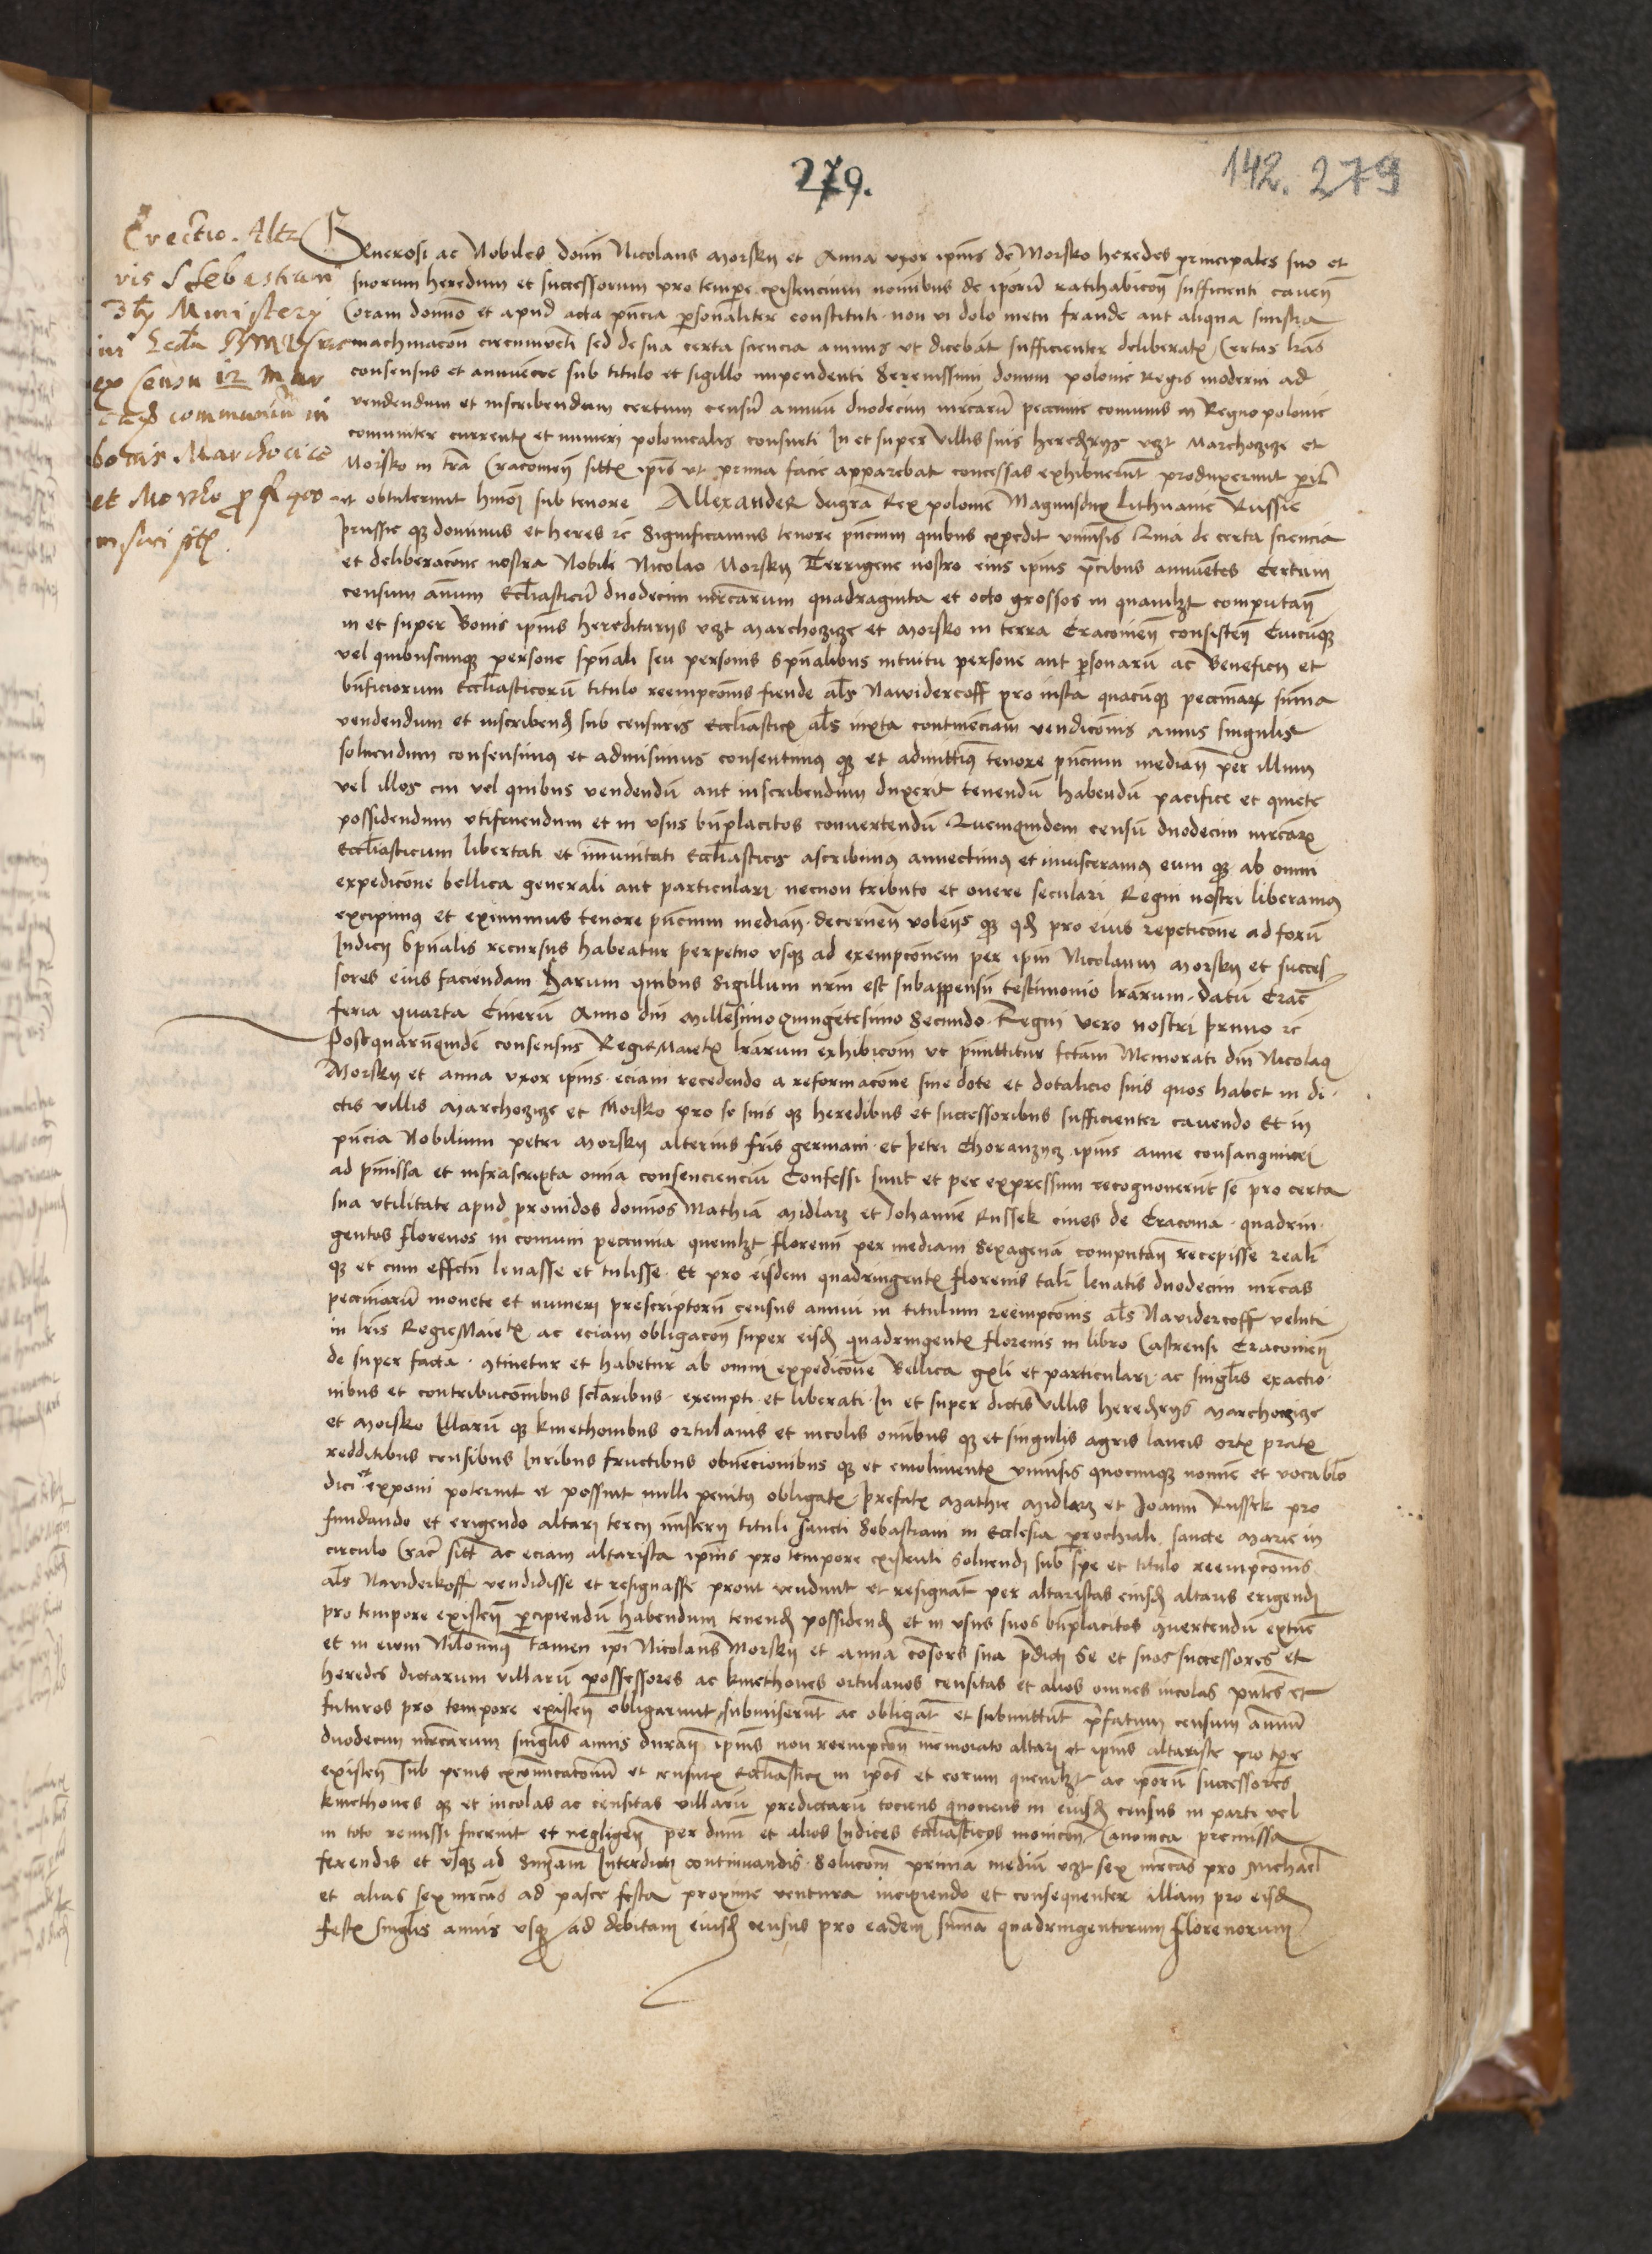 279.
142. 279
Erectio Alta
ris S Sebestiani
3tÿ Ministerÿ
in Eccla BMV
ex censu 12 mar
communiu in
bonis Marchocice
et Morsko p fl 400
Generosi ac Nobiles domi Nicolaus Morskÿ et Anna vxor ipius de Morsko heredes principales suo et
suorum heredum et successorum pro tempe existencium nomibus de iporu ratihabicon sufficienti caven
Coram domino et apud acta pncia psonaliter constituti non vi dolo metu fraude aut aliqua sinistra
machinacon circumventi sed de sua certa sciencia animis vt dicebat sufficienter deliberatis Certas lras
consensus et annuencie sub titulo et sigillo inpendenti Serenissimi domini polonie Regis moderni ad
vendendum et inscribendum certum censu annuu duodecim mrcaru peccunie comunis in Regno polonie
comuniter currentis et numeri polonicalis consueti In et super villis suis heredrijs vzt Marchozize et
Morsko in tra Cracovien sittis ipis vt prima facie apparebat concessas exhibuerunt produxerunt
obtulerunt hmoi sub tenore Allexander deigra Rex polonie Magnusdux Lithuanie Russie
prussie qz dominus et heres rc Significamus tenore pncium quibus expedit vniusis Quia de certa sciencia
et deliberacone nostra Nobile Nicolao Morskÿ Terrigene nostro eius ipius pcibus annuetes Certum
censum annum Ecclasticu duodecim mrcarum quadraginta et octo grossos in quamlzt computan
in et super Bonis ipius hereditarijs vzt Marchozize et Morsko in terra Cracovien consisten Cuicuqz
vel quibuscunqz persone spuali seu personis spualibus intuitu persone aut psonaru ac beneficÿ et
bnficiorum Ecclasticoru titulo reempconis fiende als Nawidercoff pro iusta quacuqz peccniar suma
vendendum et inscribend sub censuris Ecclasticis als iuxta continenciam vendiconis annis singulis
soluendum consensimus et admisimus consentimus qz et admittimus tenore pncium median per illum
vel illos cui vel quibus vendendu aut inscribendum duxerit tenendu habendu pacifice et quiete
possidendum vtifruendum et in vsus bnplacitos convertendu Quemquidem censu duodecim mrcaru
Ecclasticum libertati et imunitati Ecclasticis ascribimus annectimus et inuisceramus eum qz ab omni
expedicone bellica generali aut particulari necnon tributo et onere seculari Regni nostri liberamus
excipimus et eximimus tenore pncium median decernen volens qz qd pro eius repeticone ad foru
Judicÿ Spualis recursus habeatur perpetuo vsqz ad exempconem per ipm Nicolaum Morskÿ et succes
sores eius faciendam Harum quibus Sigillum nrm est subappensu testimonio lrarum datu Crac
feria quarta Cineru Anno dni Millesimo Quingetesimo Secundo Regni vero nostri primo rc
Postquaruquide consensus Regie Maietis lrarum exhibicom vt pmittitur fctam Memorati dni Nicolaus
Morskÿ et anna vxor ipius eciam recedendo a reformacone sine dote et dotalicio suis quos habet in di
ctis villis Marchozize et Morsko pro se suis qz heredibus et successoribus sufficienter cavendo Et in
pncia Nobilium petri Morskÿ alterius fris germani et petri Choranzÿcz ipius anne consanguinei
ad pmissa et infrascripta omia consenciencium Confessi sunt et per expressum recognouerunt se pro certa
sua vtilitate apud prouidos dominos Mathia Midlarz et Johanne Russek cives de Cracovia quadrin
gentos florenos in comuni peccunia quemlzt florenu per mediam Sexagena computan recepisse reali
qz et cum effectu leuasse et tulisse Et pro eisdem quadringentis florenis tali leuatis duodecim mrcas
peccniaru monete et numeri prescriptoru census annui in titulum reempconis als Navidercoff veluti
in lris Regie Maietis ac eciam obligacon super eisd quadringentis florenis in libro Castrensi Cracovien
de super facta 9tinetur et habetur ab omni expedicone Bellica gnli et particulari ac singlis exactio
nibus et contribuconibus sclaribus exempti et liberati In et super dictis villis heredrijs Marchozize
et Morsko Illaru qz kmethonibus ortulanis et incolis omibus qz et singulis agris laneis ortis pratis
redditibus censibus Iuribus fructibus obuencionibus qz et emolimentis vniusis quocunqz nomie et vocablo
dici exponi poterint et possunt nulli penitus obligatis prefatis Mathie Midlarz et Joanni Russek pro
fundando et erigendo altari tercÿ misterÿ tituli Sancti Sebastiani in Ecclesia prochiali sancte Marie in
circulo Crac sitt ac eciam altarista ipius pro tempore existenti soluendi sub spe et titulo reempconis
als Naviderkoff vendidisse et resignasse prout vendunt et resignat per altaristas eiusd altaris erigendi
pro tempore existen pcipiendu habendum tenend possidend et in vsus suos bnplacitos 9vertendu extuc
et in eum Nilominus tamen ipi Nicolaus Morskÿ et anna cosors sua pdicti se et suos successores et
heredes dictarum villaru possessores ac kmethones ortulanos censitas et alios omnes incolas pntes et
futuros pro tempore existen obligarunt submiserunt ac obligat et submittut pfatum censum annuu
duodecim mrcarum singlis annis duran ipius non reempcon memorato altari et ipius altariste pro tpe
existen Sub penis excomicatonu et censuris Ecclasticis in ipos et eorum quemlzt ac iporu successores
kmethones qz et incolas ac censitas villaru predictaru tociens quociens in eiusd census in parti vel
in toto remissi fuerint et negligen per dnm et alios Iudices Ecclasticos monicon Canonica premissa
ferendis et vsqz ad Smam Interdicti continuandis Solucom prima mediu vzt sex mrcas pro Michael
et alias sex mrcas ad pasce festa proxime ventura incipiendo et consequenter illam pro eisd
festis singlis annis vsqz ad debitam eiusd census pro eadem suma quadringentorum florenorum